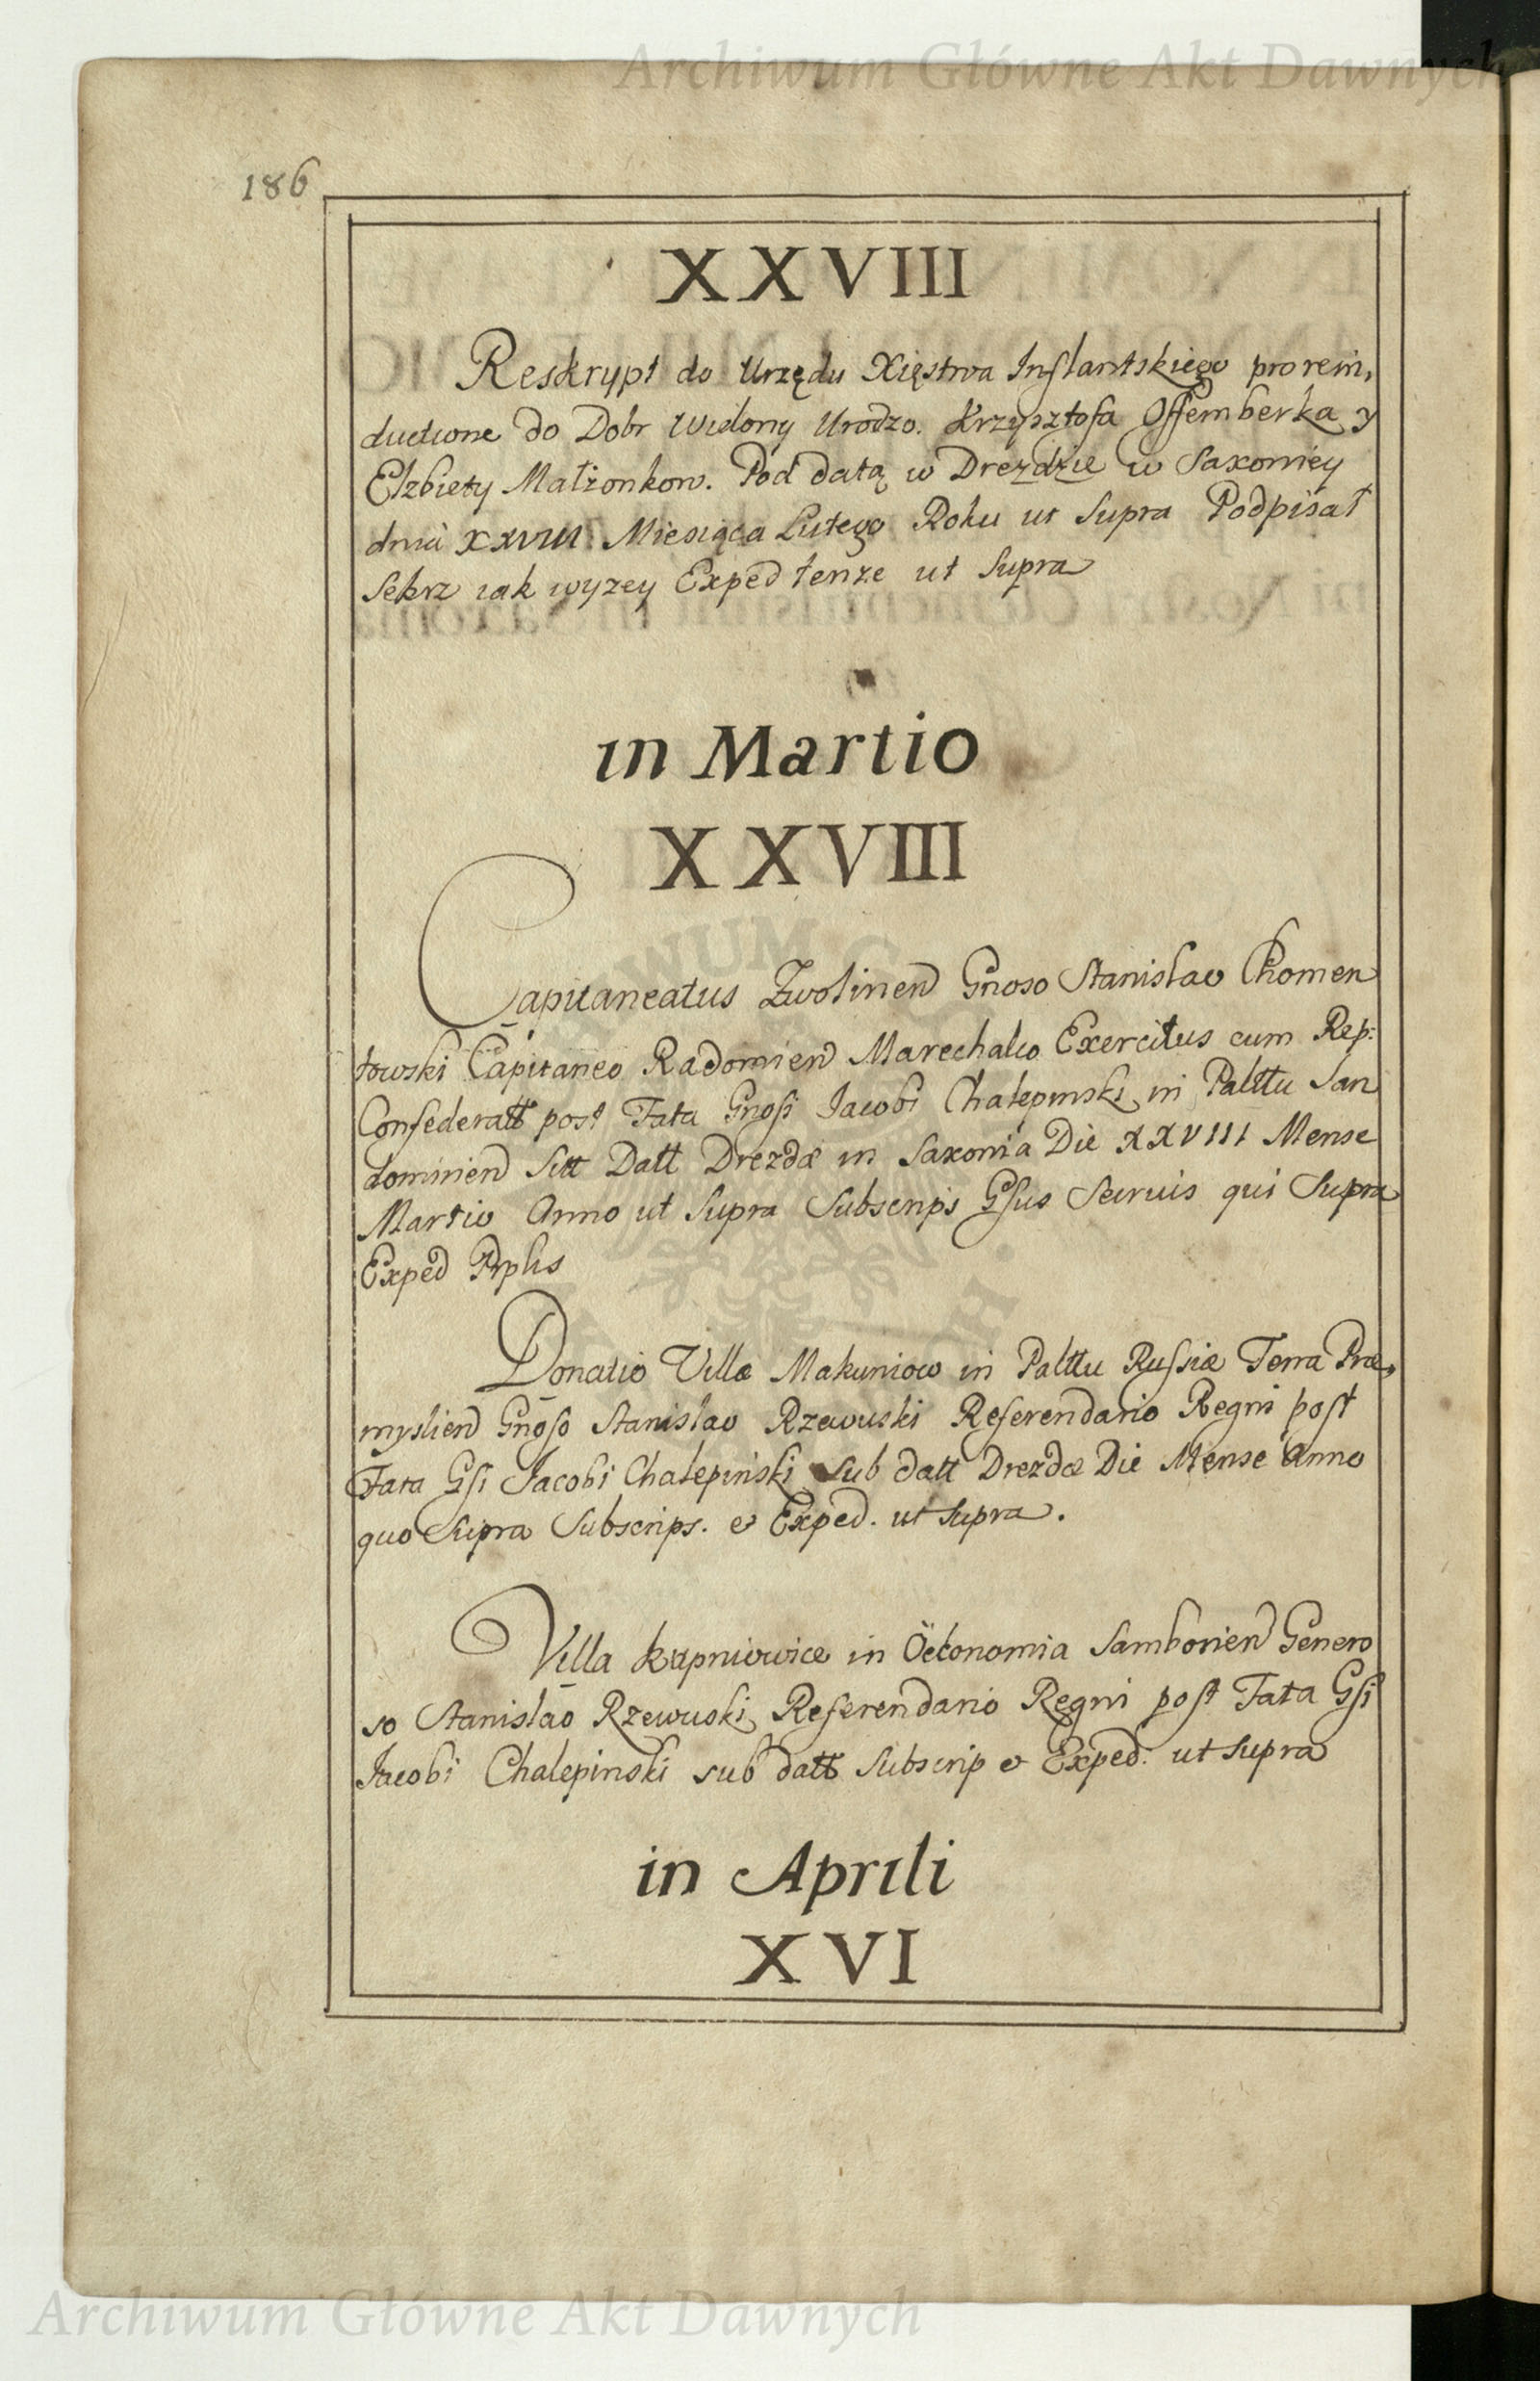 Archiwum Główne Akt Dawnych
186
XXVIII
Reskrypt do Urzędu Xięstwa Inflantskiego pro rein,
ductione do Dobr Widony Urodzo. Krzysztofa Offemberka y
Elzbiety Małżonkow. Pod datą w Drezdzie w Saxoniey
dnia XXVIII Miesiąca Lutego Roku ut Supra Podpisał
Sekrz iak wyzey Exped tenze ut Supra
in Martio
XXVIII
Capitaneatus Zwolinen Gnoso Stanislao Chomen
towski Capitaneo Radomien Marechalco Exercitus cum Rep:
Confederatt post Fata Gnosi Jacobi Chalepinski in Palttu San
domirien Sitt Datt Drezdæ in Saxonia Die XXVIII Mense
Martio Anno ut Supra Subscrips Gsus qui Supra
Exped
Donatio Villæ Makuniow in Palttu Russiæ Terra Præ,
myslien Gnoso Stanislao Rzewuski Referendario Regni post
Fata Gsi Jacobi Chalepinski Sub datt Drezdæ Die Mense Anno
quo Supra Subscrips. et Exped. ut Supra.
Villa Kupniowice in Öeconomia Samborien Genero
so Stanislao Rzewuski Referendario Regni post Fata Gsi
Jacobi Chalepinski sub datt Subscrip et Exped: ut Supra
in Aprili
XVI
Archiwum Główne Akt Dawnych